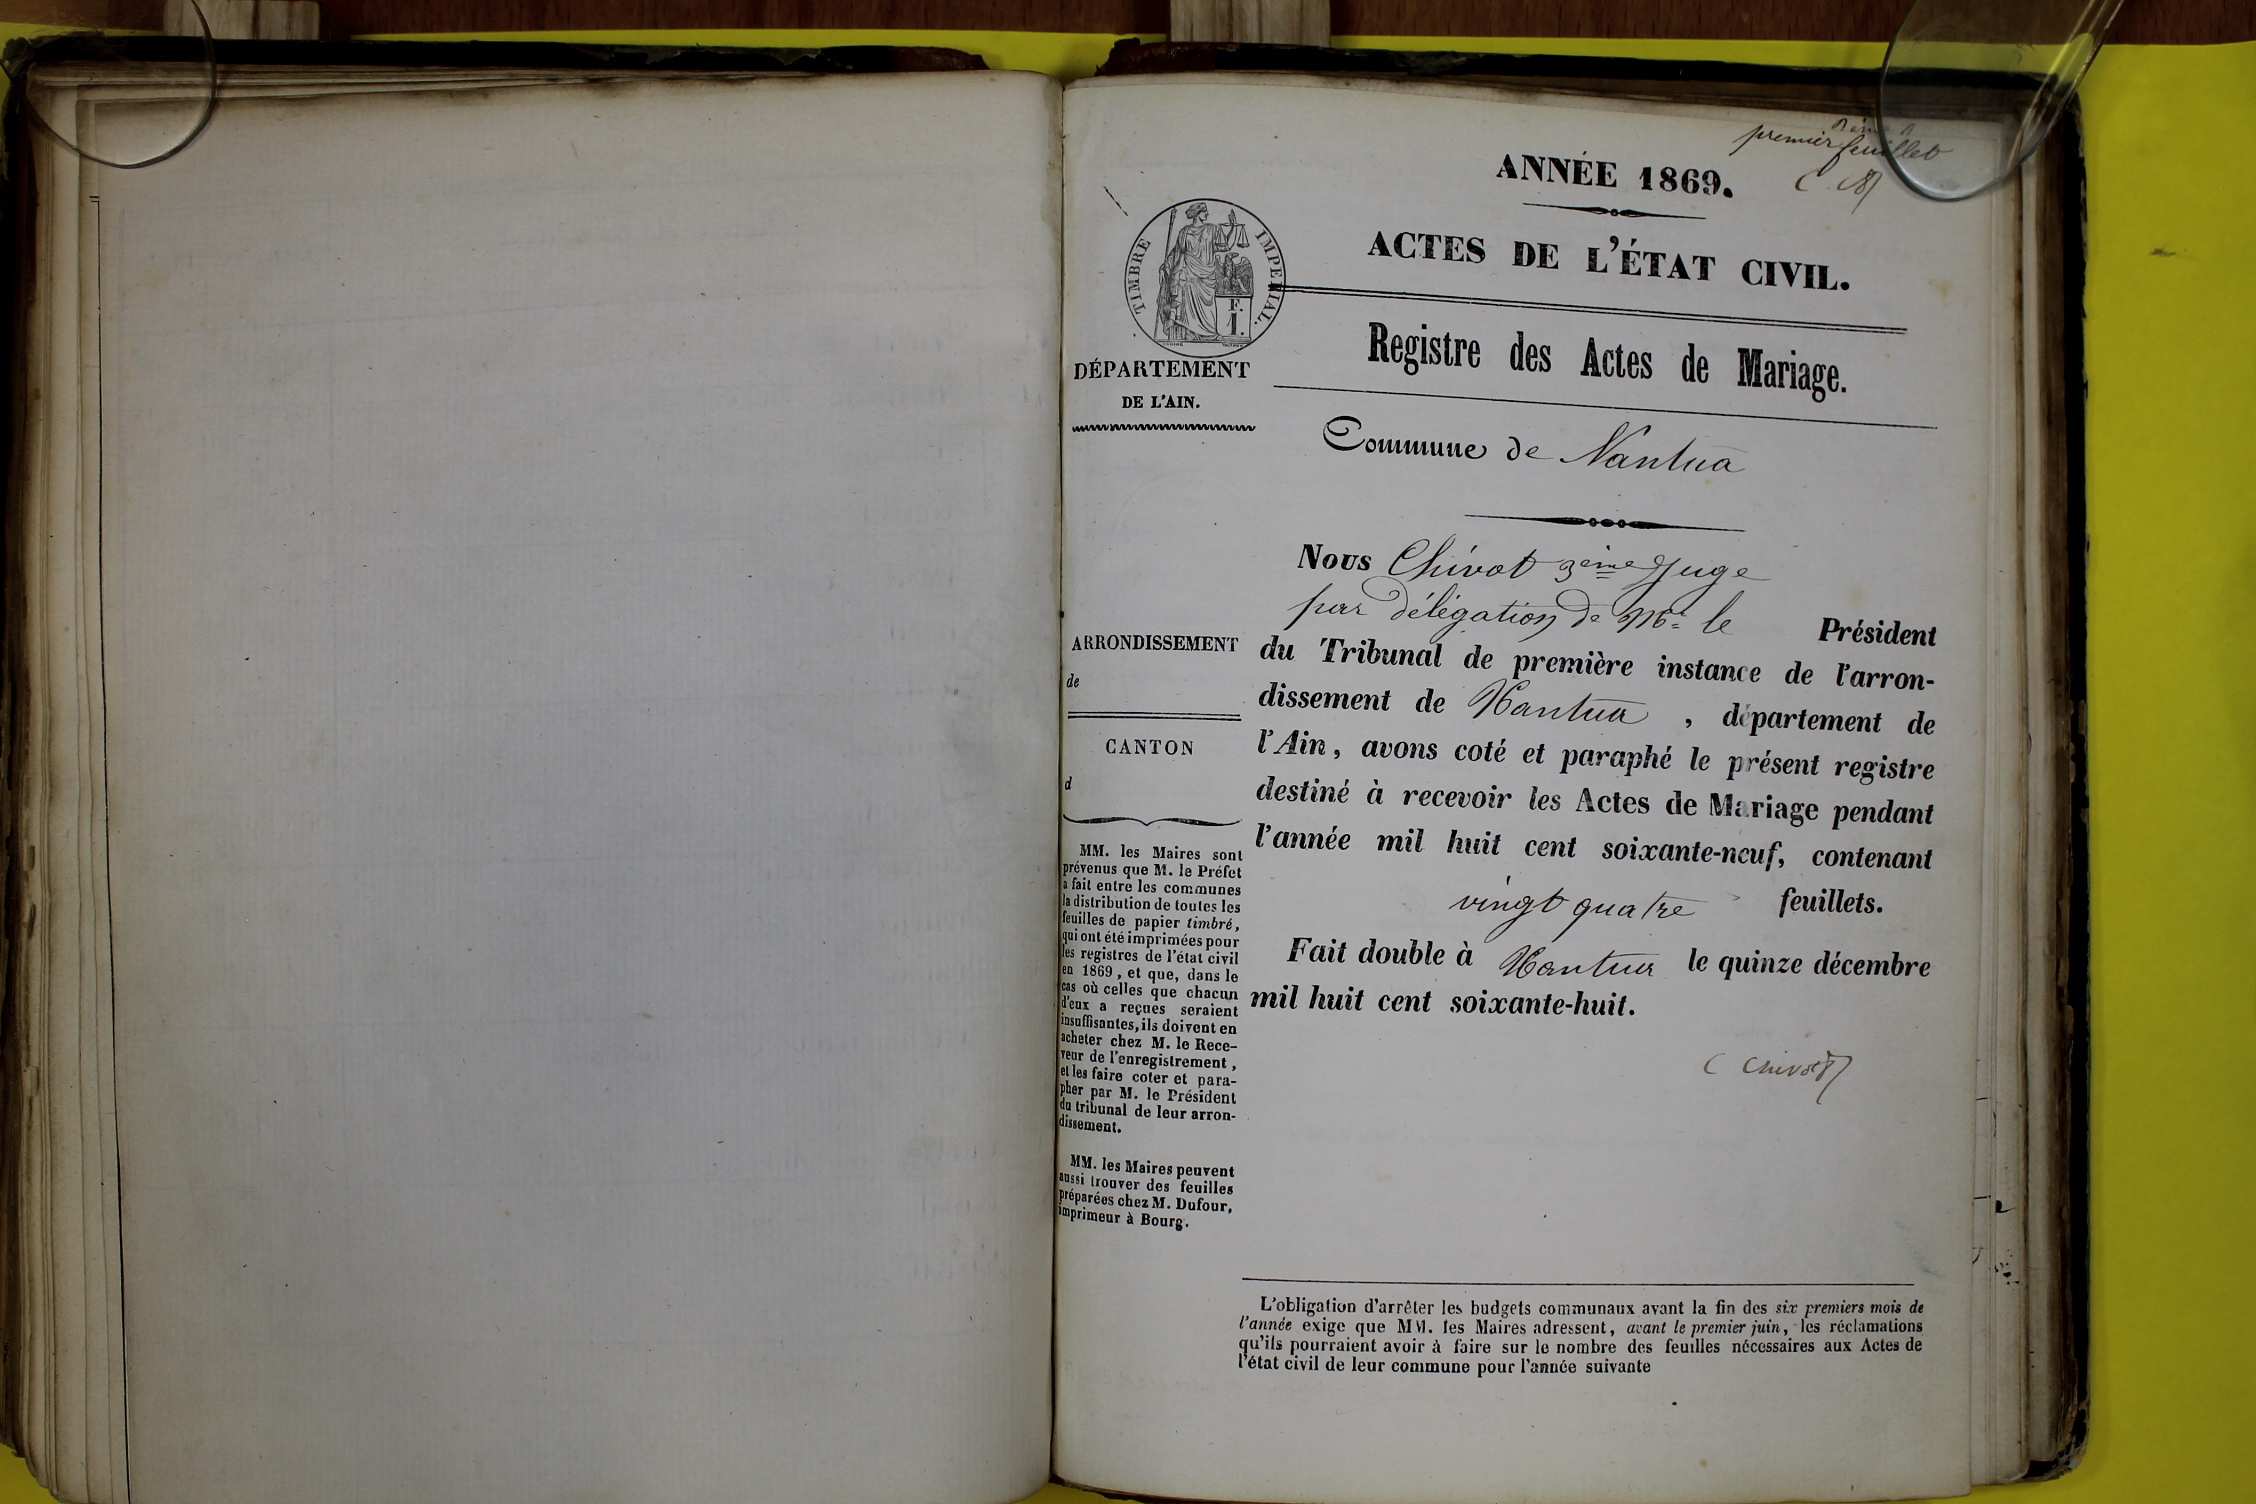 premier feuillet
ANNÉE 1869.
ACTES DE L'ÉTAT CIVIL.
TIMBRE IMPERIAL.
F.
1.
Registre des Actes de Mariage.
DÉPARTEMENT
DE L'AIN.
Commune de Nantua
Nous Chivot 3ème Juge
par délégation de Mr le Président
du Tribunal de première instance de l'arron-
dissement de Nantua, département de
l'Ain, avons coté et paraphé le présent registre
destiné à recevoir les Actes de Mariage pendant
l'année mil huit cent soixante-neuf, contenant
vingt quatre feuillets.
Fait double à Nantua le quinze décembre
mil huit cent soixante-huit.
C Chivot
ARRONDISSEMENT
de
CANTON
d
MM. les Maires sont
prévenus que M. le Préfet
a fait entre les communes
la distribution de toutes les
feuilles de papier timbré,
qui ont été imprimées pour
les registres de l'état civil
en 1869, et que, dans le
cas où celles que chacun
d'eux a reçues seraient
insuffisantes, ils doivent en
acheter chez M. le Rece-
veur de l'enregistrement,
et les faire coter et para-
pher par M. le Président
du tribunal de leur arron-
dissement.
MM. les Maires peuvent
aussi trouver des feuilles
préparées chez M. Dufour,
imprimeur à Bourg.
L'obligation d'arrêter les budgets communaux avant la fin des six premiers mois de
l'année exige que MM. les Maires adressent, avant le premier juin, les réclamations
qu'ils pourraient avoir à faire sur le nombre des feuilles nécessaires aux Actes de
l'état civil de leur commune pour l'année suivante